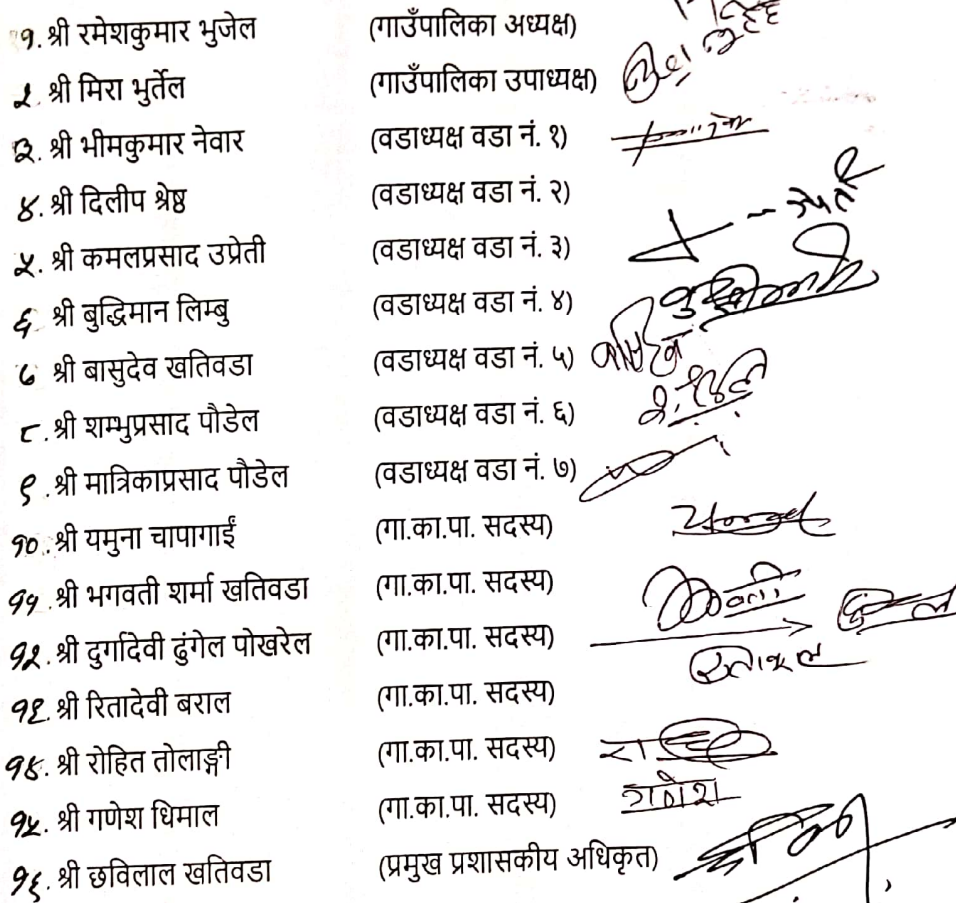 १. श्री रमेशकुमार भुजेल (गाउँपालिका अध्यक्ष)
२. श्री मिरा भुर्तेल (गाउँपालिका उपाध्यक्ष)
३. श्री भीमकुमार नेवार (वडाध्यक्ष वडा नं. १)
४. श्री दिलीप श्रेष्ठ (वडाध्यक्ष वडा नं. २)
५. श्री कमलप्रसाद उप्रेती (वडाध्यक्ष वडा नं. ३)
६ श्री बुद्धिमान लिम्बु (वडाध्यक्ष वडा नं. ४)
७ श्री बासुदेव खतिवडा (वडाध्यक्ष वडा नं. ५)
८. श्री शम्भुप्रसाद पौडेल (वडाध्यक्ष वडा नं. ६)
९. श्री मात्रिकाप्रसाद पौडेल (वडाध्यक्ष वडा नं. ७)
१०. श्री यमुना चापागाईं (गा.का.पा. सदस्य)
११. श्री भगवती शर्मा खतिवडा (गा.का.पा. सदस्य)
१२. श्री दुर्गादेवी ढुंगेल पोखरेल (गा.का.पा. सदस्य)
१३. श्री रितादेवी बराल (गा.का.पा. सदस्य)
१४. श्री रोहित तोलाङ्गी (गा.का.पा. सदस्य)
१५. श्री गणेश धिमाल (गा.का.पा. सदस्य) गणेश
१६. श्री छविलाल खतिवडा (प्रमुख प्रशासकीय अधिकृत)